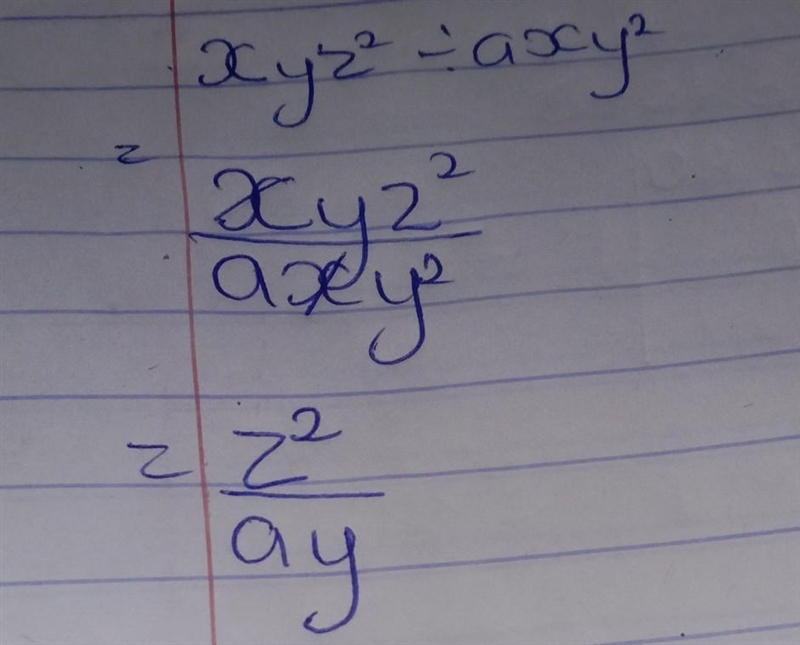 xyz² ÷ axy²
=
xyz²
axy²
= z²
ay